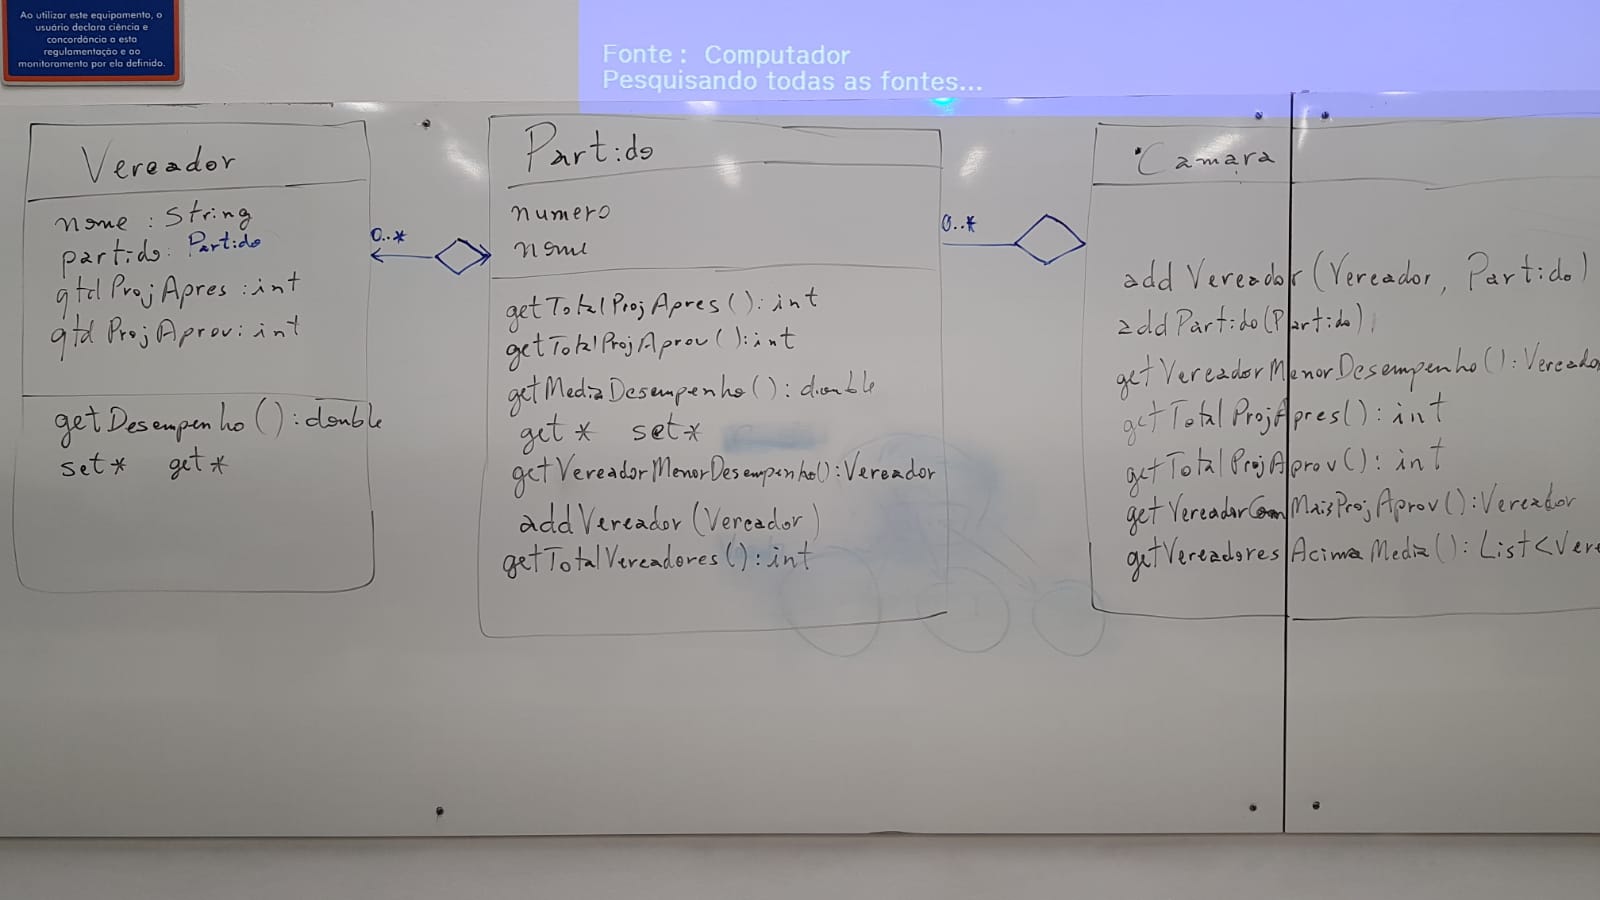 Ao utilizar este equipamento, o
usuário declara ciência e
concordância a esta
regulamentação e ao
monitoramento por ela definido.
Fonte : Computador
Pesquisando todas as fontes...
Vereador
nome : String
partido: Partido
qtdProjApres : int
qtdProjAprov: int
getDesempenho() : double
set* get*
0..*
Partido
numero
nome
getTotalProjApres() : int
getTotalProjAprov() : int
getMediaDesempenho() : double
get* set*
getVereadorMenorDesempenho():Vereador
addVereador(Vereador)
getTotalVereadores() : int
0..*
Camara
addVereador(Vereador, Partido)
addPartido(Partido)
getVereadorMenorDesempenho() : Vereado
getTotalProjApres() : int
getTotalProjAprov() : int
getVereadorComMaisProjAprov() : Vereador
getVereadoresAcimaMedia() : List<Vere